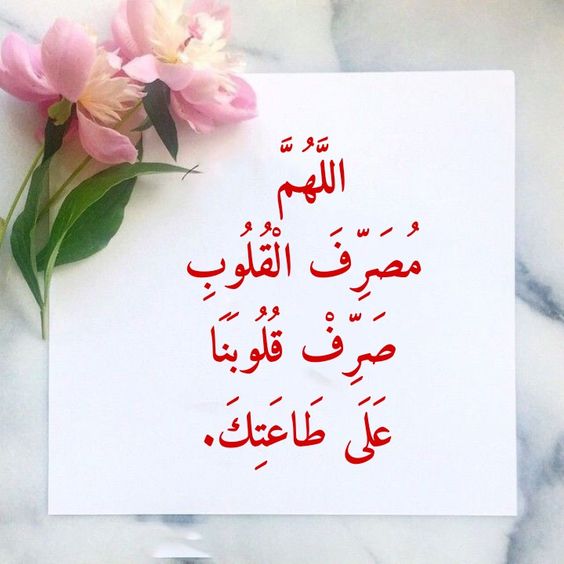 اللَّهُمَّ
مُصَرِّفَ الْقُلُوبِ
صَرِّفْ قُلُوبَنَا
عَلَى طَاعَتِكَ.